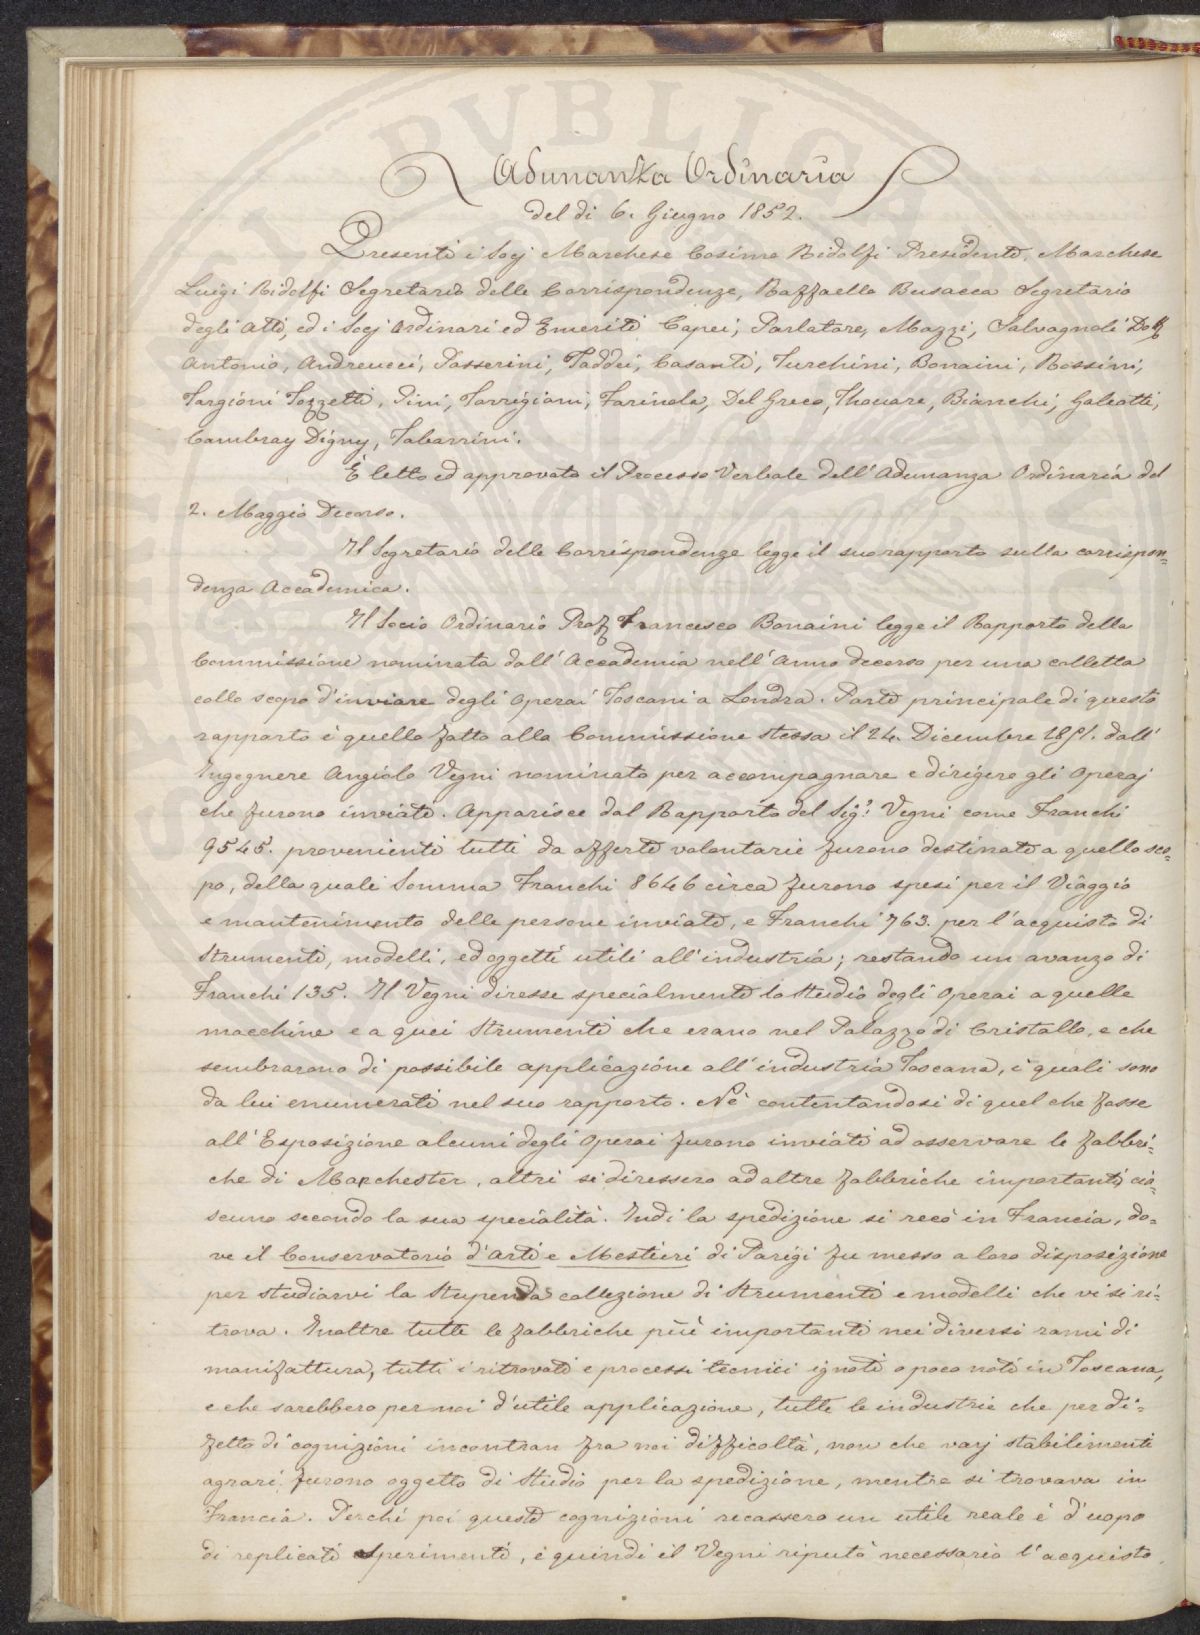 Adunanza Ordinaria
del dì 6. Giugno 1852.
Presenti i Socj Marchese Cosimo Ridolfi Presidente, Marchese
Luigi Ridolfi Segretario delle Corrispondenze, Raffaello Busacca Segretario
degli Atti, ed i Socj Ordinari ed Emeriti Capei, Parlatore, Mazzi, Salvagnoli Dott.
Antonio, Andreucci, Passerini, Taddei, Casanti, Turchini, Bonaini, Rossini,
Targioni Tozzetti, Pini, Torrigiani, Farinola, Del Greco, Thouare, Bianchi, Galeotti,
Cambray Digny, Tabarrini.
È letto ed approvato il Processo Verbale dell'Adunanza Ordinaria del
2. Maggio Decorso.
Il Segretario delle Corrispondenze legge il suo rapporto sulla corrispon=
denza Accademica.
Il Socio Ordinario Prof Francesco Bonaini legge il Rapporto della
Commissione nominata dall'Accademia nell'Anno decorso per una colletta
collo scopo d'inviare degli Operai Toscani a Londra. Parte principale di questo
rapporto è quello fatto alla Commissione stessa il 24. Dicembre 1851. dall'
Ingegnere Angiolo Vegni nominato per accompagnare e dirigere gli Operaj
che furono inviati. Apparisce dal Rapporto del Sig.r Vegni come Franchi
9545. provenienti tutti da offerte volontarie furono destinati a quello sco=
po, della quale Somma Franchi 8646 circa furono spesi per il Viaggio
e mantenimento delle persone inviate, e Franchi 763. per l'acquisto di
Strumenti, modelli, ed oggetti utili all'industria; restando un avanzo di
Franchi 135. Il Vegni diresse specialmente lo Studio degli Operai a quelle
macchine e a quei Strumenti che erano nel Palazzo di Cristallo, e che
sembrarono di possibile applicazione all'industria Toscana, i quali sono
da lui enumerati nel suo rapporto. Nè contentandosi di quel che fosse
all'Esposizione alcuni degli Operai furono inviati ad osservare le fabbri=
che di Manchester, altri si diressero ad altre fabbriche importanti cia=
scuno secondo la sua specialità. Indi la spedizione si recò in Francia, do=
ve il Conservatorio d'Arti e Mestieri di Parigi fu messo a loro disposizione
per studiarvi la Stupenda collezione di Strumenti e modelli che vi si ri=
trova. Inoltre tutte le fabbriche più importanti nei diversi rami di
manifattura, tutti i ritrovati e processi tecnici ignoti o poco noti in Toscana,
e che sarebbero per noi d'utile applicazione, tutte le industrie che per di=
fetto di cognizioni incontran fra noi difficoltà, non che varj stabilimenti
agrari furono oggetto di Studio per la spedizione, mentre si trovava in
Francia. Perchè poi queste cognizioni recassero un utile reale è d'uopo
di replicati Sperimenti, e quindi il Vegni riputò necessario l'acquisto